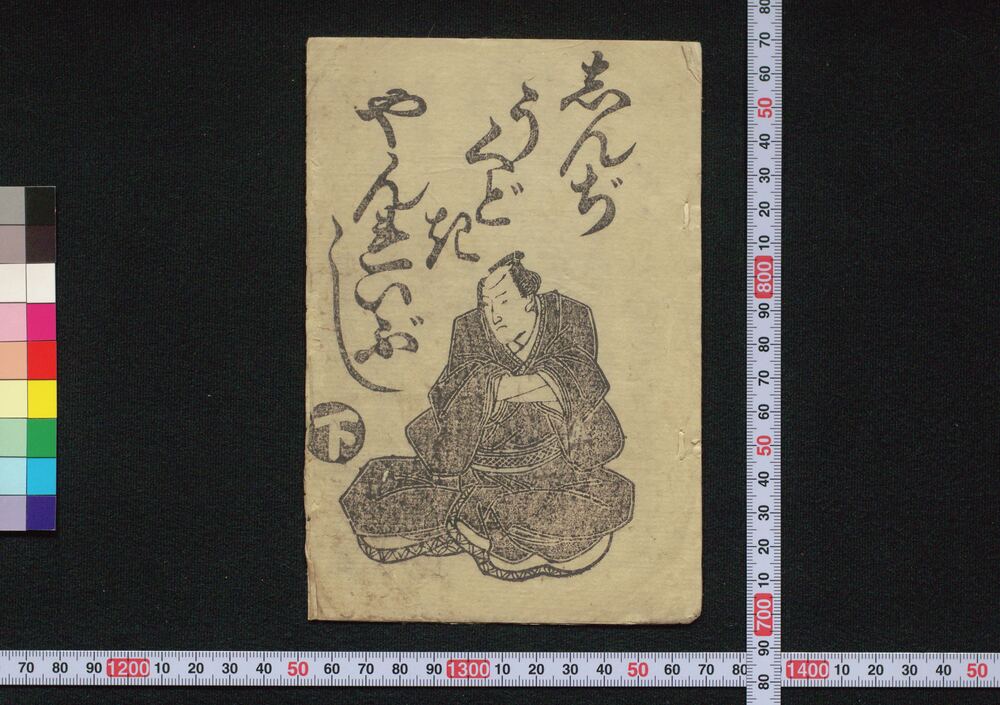 志んぢ
うくど
き
やんれいぶし
下
80 70 60 50 40 30 20 10 800 90 80 70 60 50 40 30 20 10 700 90 80
70 80 90 1200 10 20 30 40 50 60 70 80 90 1300 10 20 30 40 50 60 70 80 1400 10 20 30 40 50